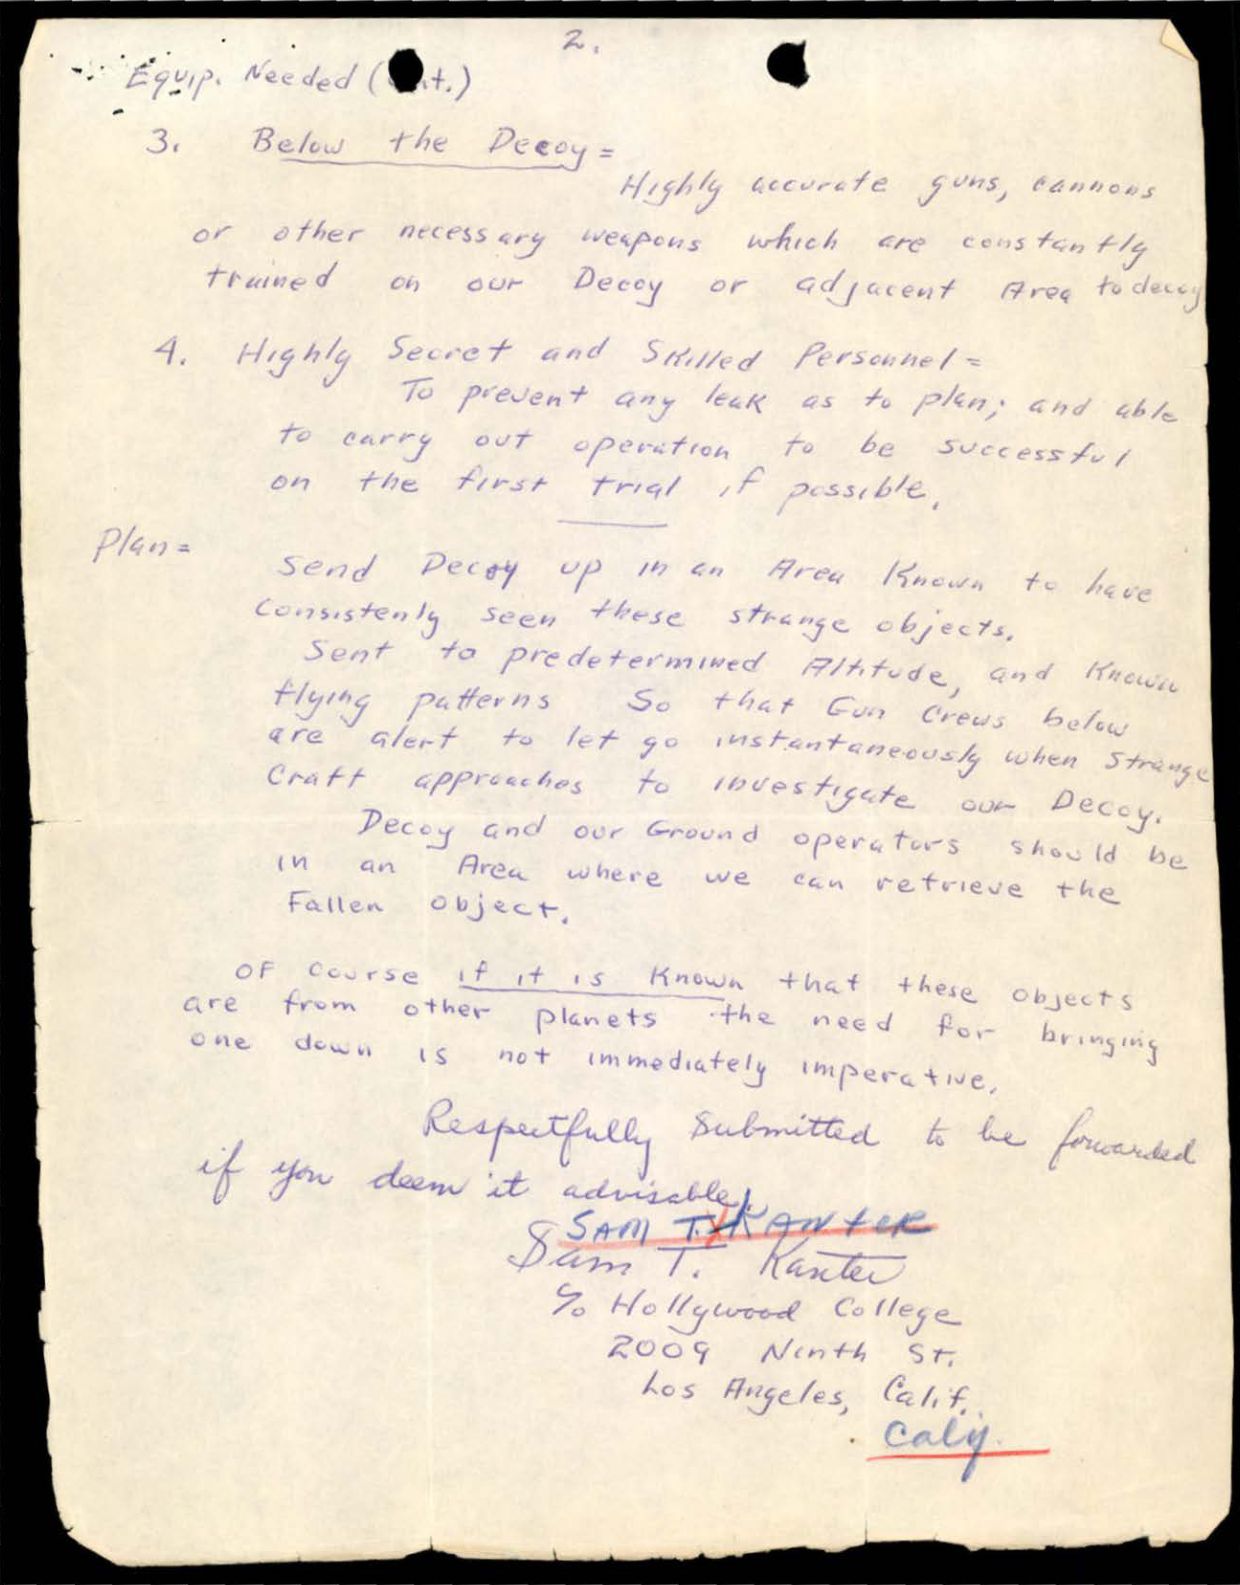 2.
Equip. Needed (   nt.)
3. Below the Decoy =
Highly accurate guns, cannons
or other necessary weapons which are constantly
trained on our Decoy or adjacent Area to decoy
4. Highly Secret and Skilled Personnel =
To prevent any leak as to plan; and able
to carry out operation to be successful
on the first trial if possible.
Plan =
Send Decoy up in an Area Known to have
Consistenly seen these strange objects.
Sent to predetermined Altitude, and Known
flying patterns So that Gun Crews below
are alert to let go instantaneously when Strange
Craft approaches to investigate our Decoy.
Decoy and our Ground operators should be
in an Area where we can retrieve the
Fallen object.
OF course if it is Known that these objects
are from other planets the need for bringing
one down is not immediately imperative.
Respectfully Submitted to be forwarded
if you deem it advisable.
SAM T. KANTER
Sam T. Kanter
c/o Hollywood College
2009 Ninth St.
Los Angeles, Calif.
Calif.